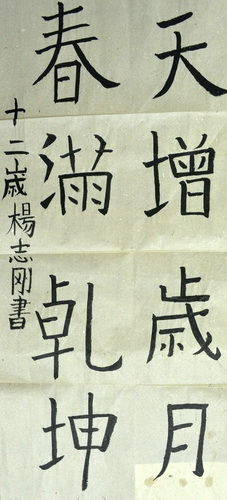 天增歲月
春滿乾坤
十二歲楊志刚書